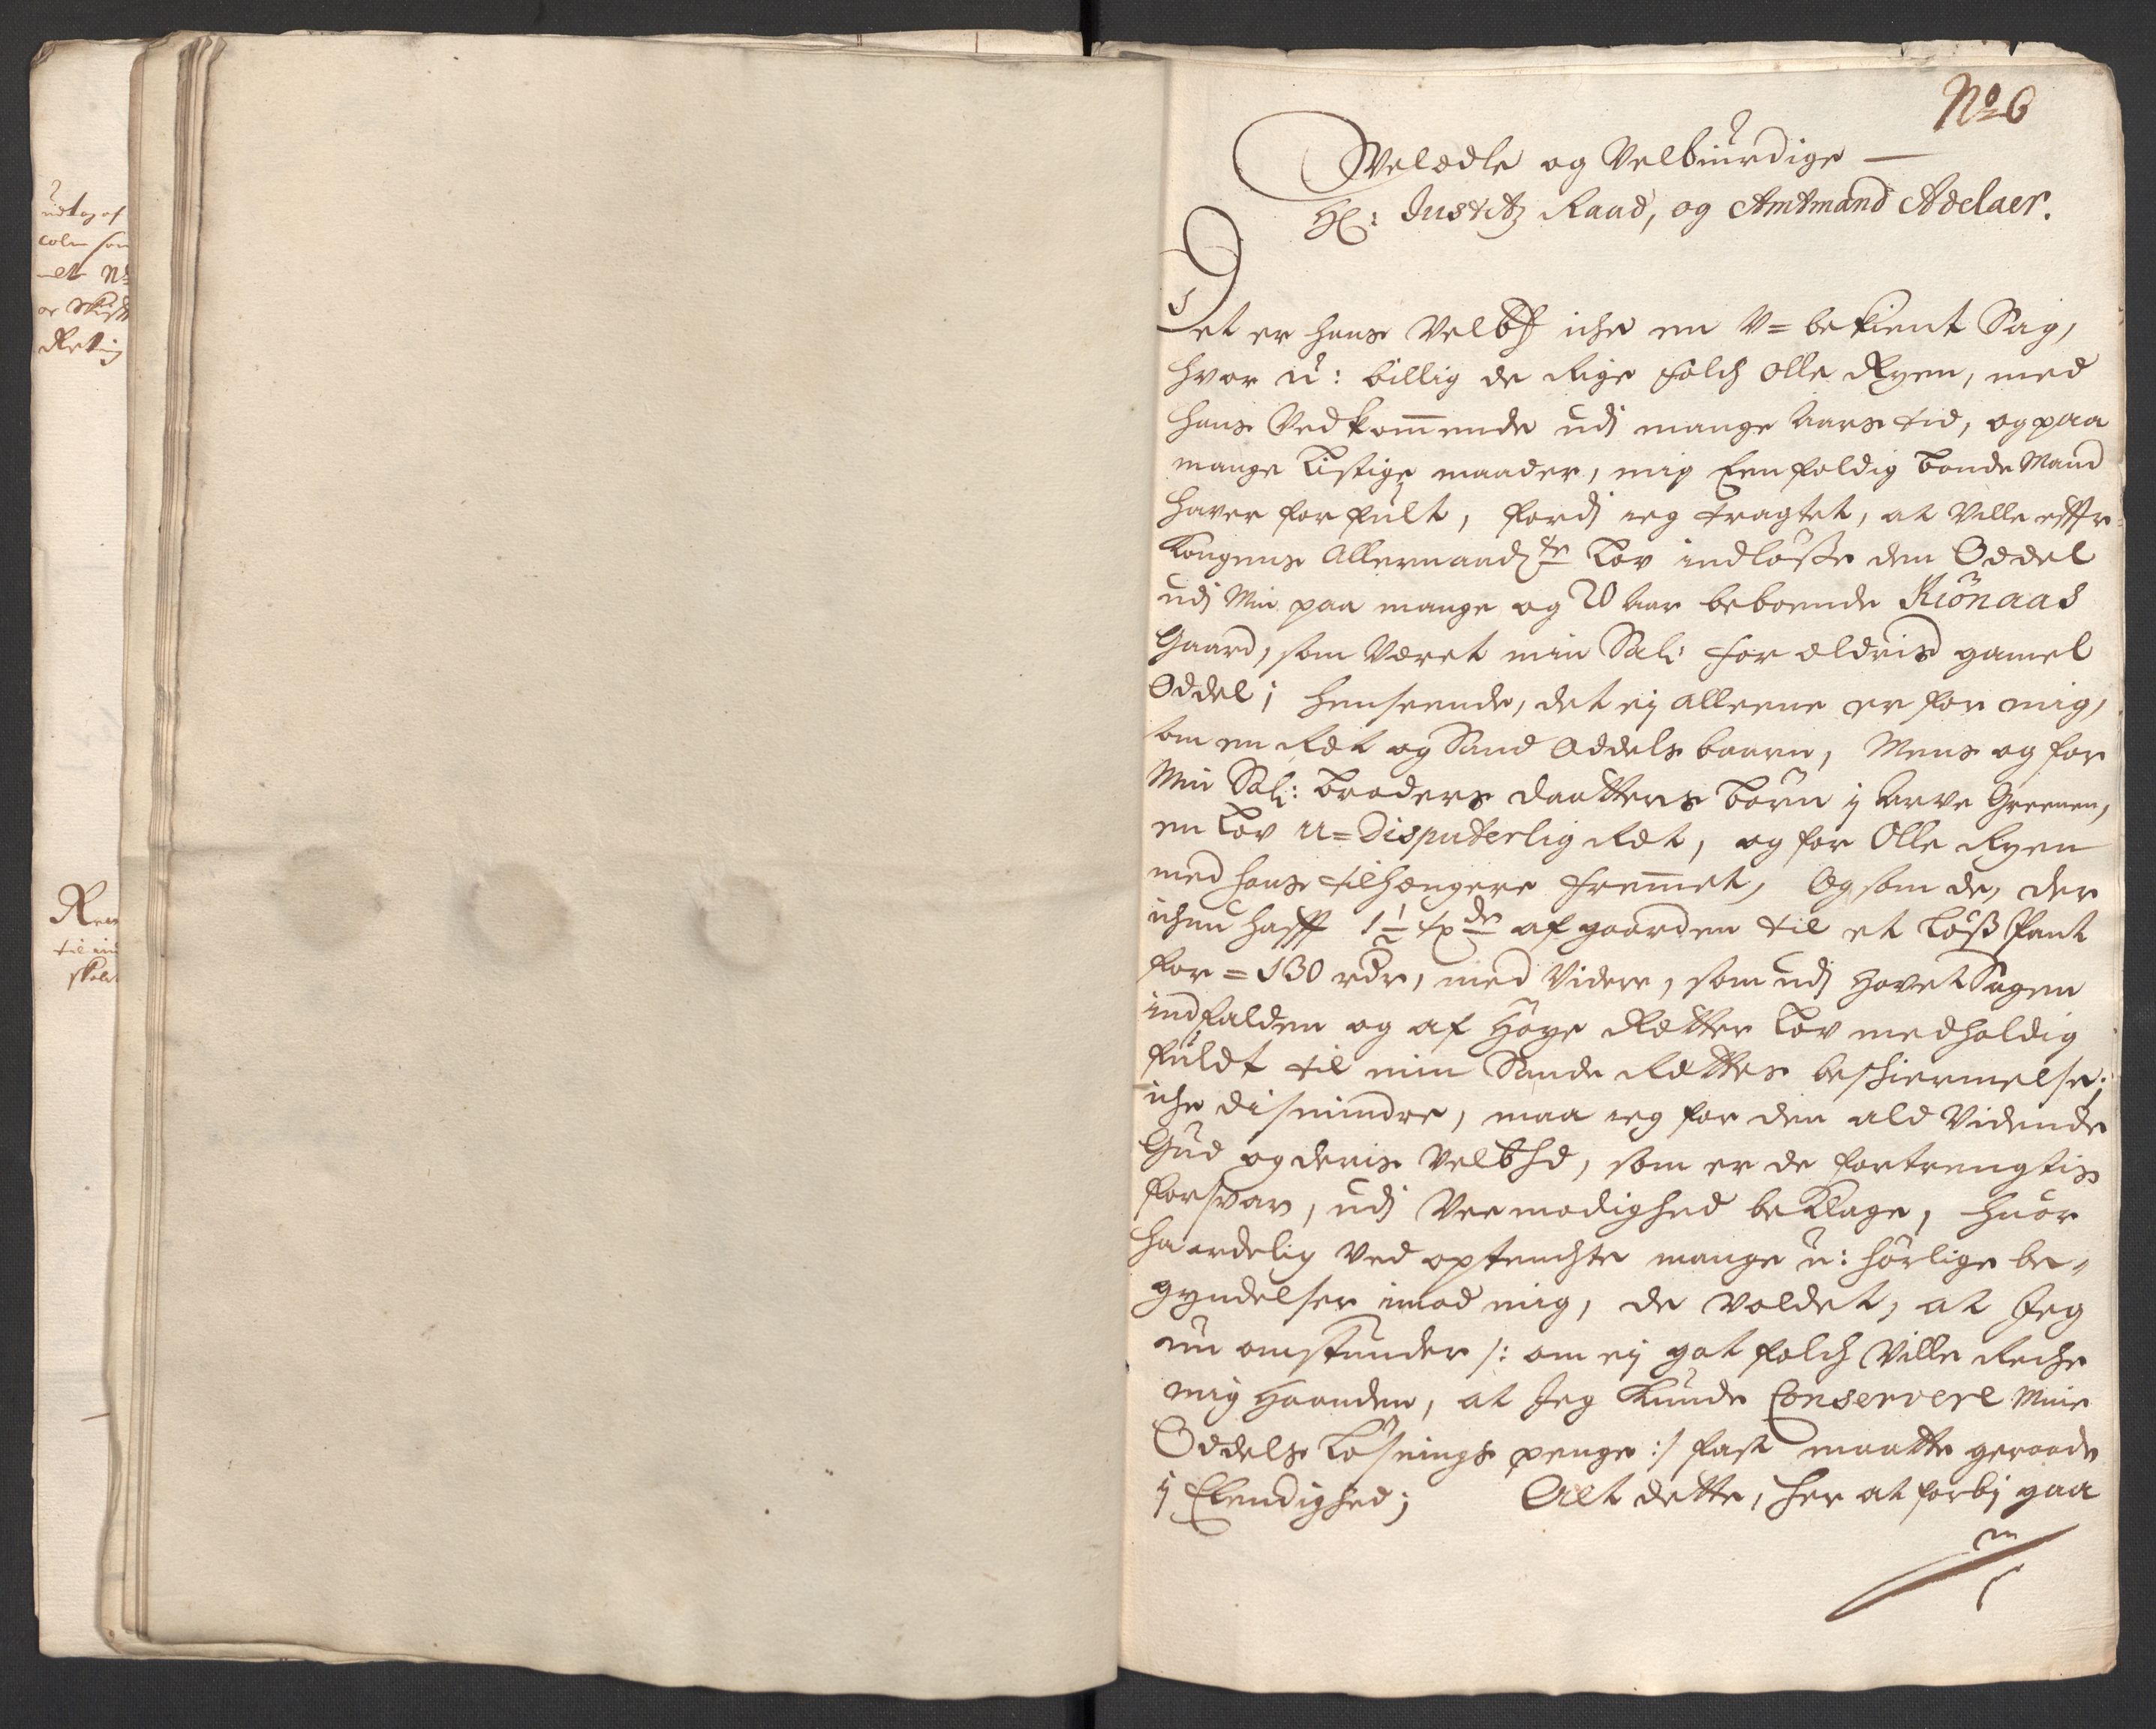 No 6
Welædle og Velbiurdige
Hr: Justitz Raad, og Amtmand Adelaer.
Det er hans Velbh iche en V= bekient Sag,
hvor u: billig de Rige folch Olle Ryen, med
hans Vedkommende udj mange Aars tid, og paa
mange Listige maader, mig Eenfoldig bonde Mand
haver forfult, fordj ieg tragtet, at Ville effter
Kongens Allernaadste Lov indløsse den Oddel
udj Min paa mange og 20 Aar beboende Kiönaas
Gaard, som Været min Sal: forældris gamel
Oddel; henseende, det ej alleene er for mig,
som en Ræt og Sand Oddels baaren, Mens og for
Min Sal: broders daatters børn ij Arve Greenen,
en Lov u=Disputerlig Ræt, og for Olle Ryen
med hans tilhængere fremmet, Og som de, der
ichun hafft 1½ spde af gaarden til et Løss Pant
for = 130 rdr, med Videre, som udj HovetSagen
indfalden og af Høye Rætter Lov medholdig
fuldt til min Sande Rættes beschiermelse;
iche dismindre, maa ieg for den ald Vidende
Gud og deris Velbhd, som er de fortrengtis
forsvar, udj Veemodighed beKlage, huor
haardelig Ved optenchte mange u: hørlige be-
gyndelser imod mig, de Voldet, at Jeg
nu omstunder /: om ej got folch Ville Reche
mig Haanden, at Jeg Kunde Conservere Mine
Oddels Løsnings penge :/ fast maatte geraade
ij Elendighed; Alt dette, her at forbj gaa